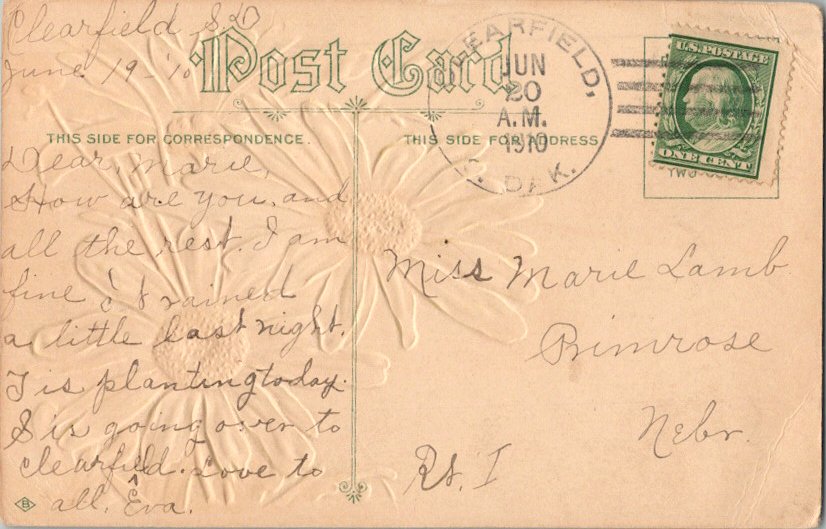 Clearfield S.D
June 19 - '10
Post Card
THIS SIDE FOR CORRESPONDENCE.
THIS SIDE FOR ADDRESS
CLEARFIELD,
JUN
20
A.M.
1910
S. DAK.
U.S. POSTAGE
ONE CENT
TWO
Dear, Marie,
How are you, and
all the rest. I am
fine & it rained
a little last night.
J is planting today.
S is going over to
Clearfield. Love to
all, Eva.
Miss Marie Lamb
Primrose
Nebr.
Rt. I
B